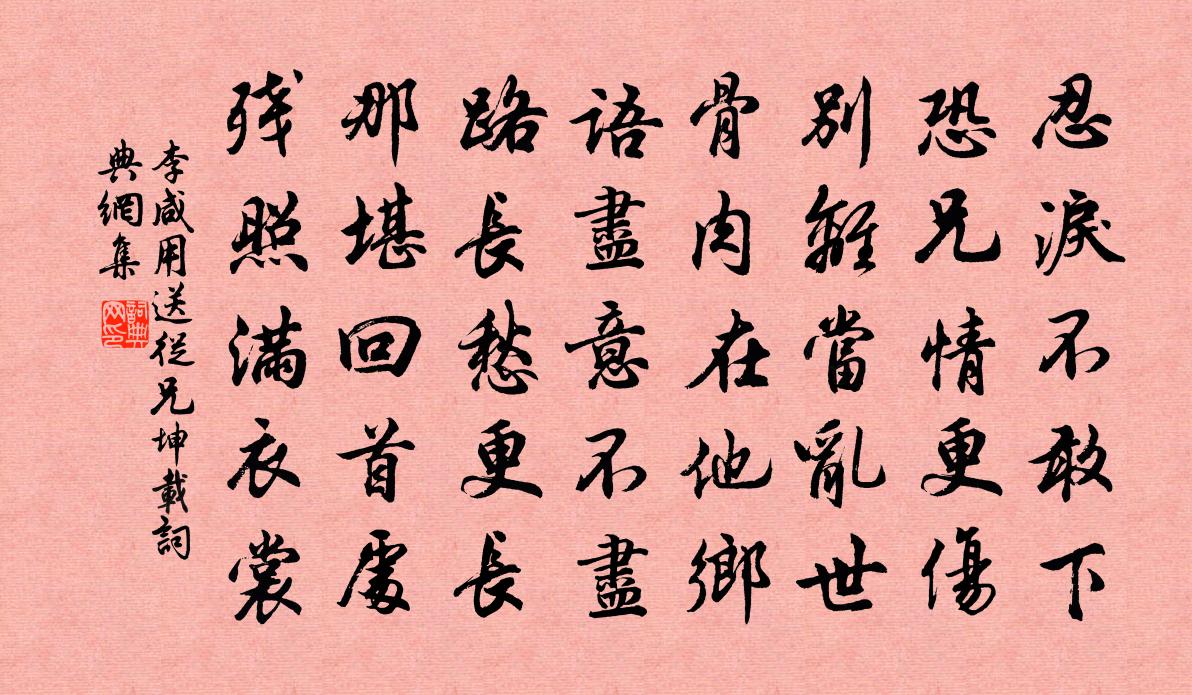 忍淚不敢下
恐兄情更傷
別離當亂世
骨肉在他鄉
語盡意不盡
路長愁更長
那堪回首處
殘照滿衣裳
李咸用送從兄坤載詞
典網集
詞典
网印